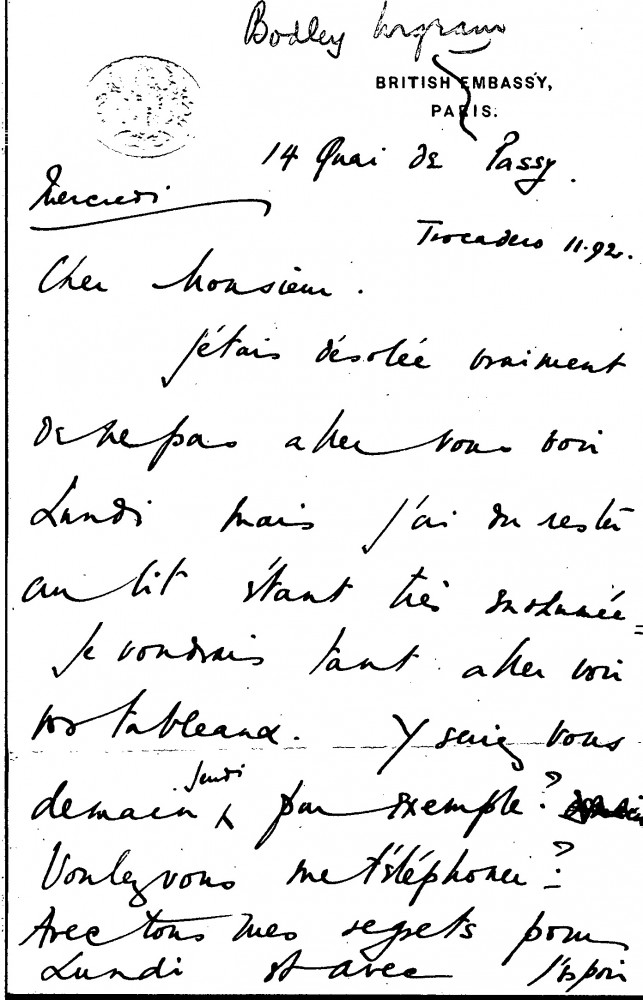 Bodley Ingram
BRITISH EMBASSY,
PARIS.
14 Quai de Passy.
Mercredi
Trocadero 11.92.
Cher Monsieur.
J'étais désolée vraiment
de ne pas aller vous voir
Lundi mais j'ai du rester
au lit étant très enrhumée
Je voudrais tant aller voir
vos tableaux. Y serez vous
demain Jeudi par exemple?
Voulez vous me téléphoner?
Avec tous mes regrets pour
Lundi et avec l'espoir